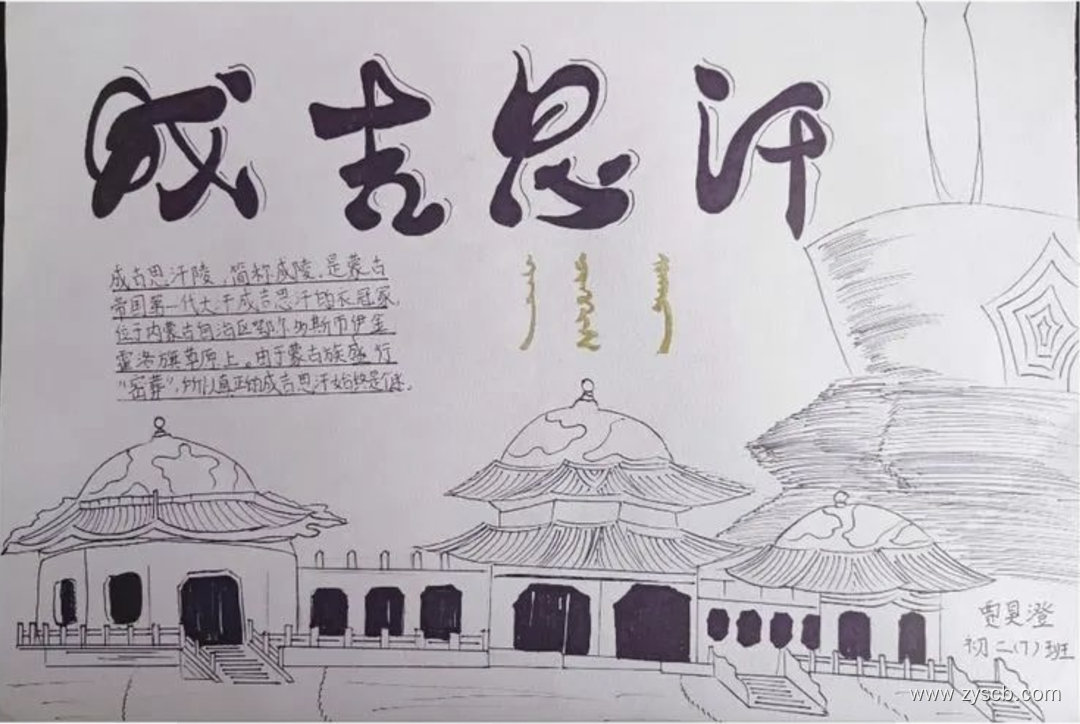 成吉思汗
成吉思汗陵,简称成陵,是蒙古
帝国第一代大汗成吉思汗的衣冠冢,
位于内蒙古自治区鄂尔多斯市伊金
霍洛旗草原上。由于蒙古族盛行
“密葬”,所以真正的成吉思汗始终是谜.
贾昊澄
初二(7)班
www.zyscb.com